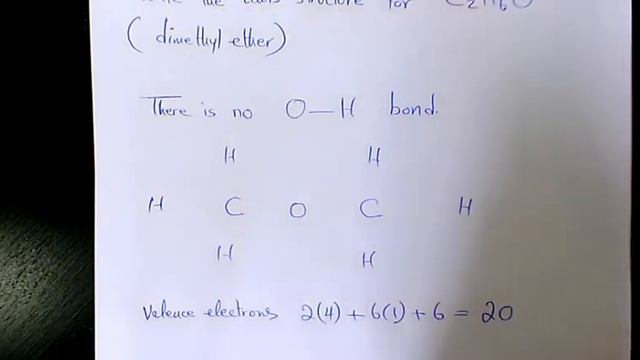 the Lewis structure for C₂H₆O
(dimethyl ether)
There is no O—H bond.
H H
H C O C H
H H
Valence electrons 2(4) + 6(1) + 6 = 20